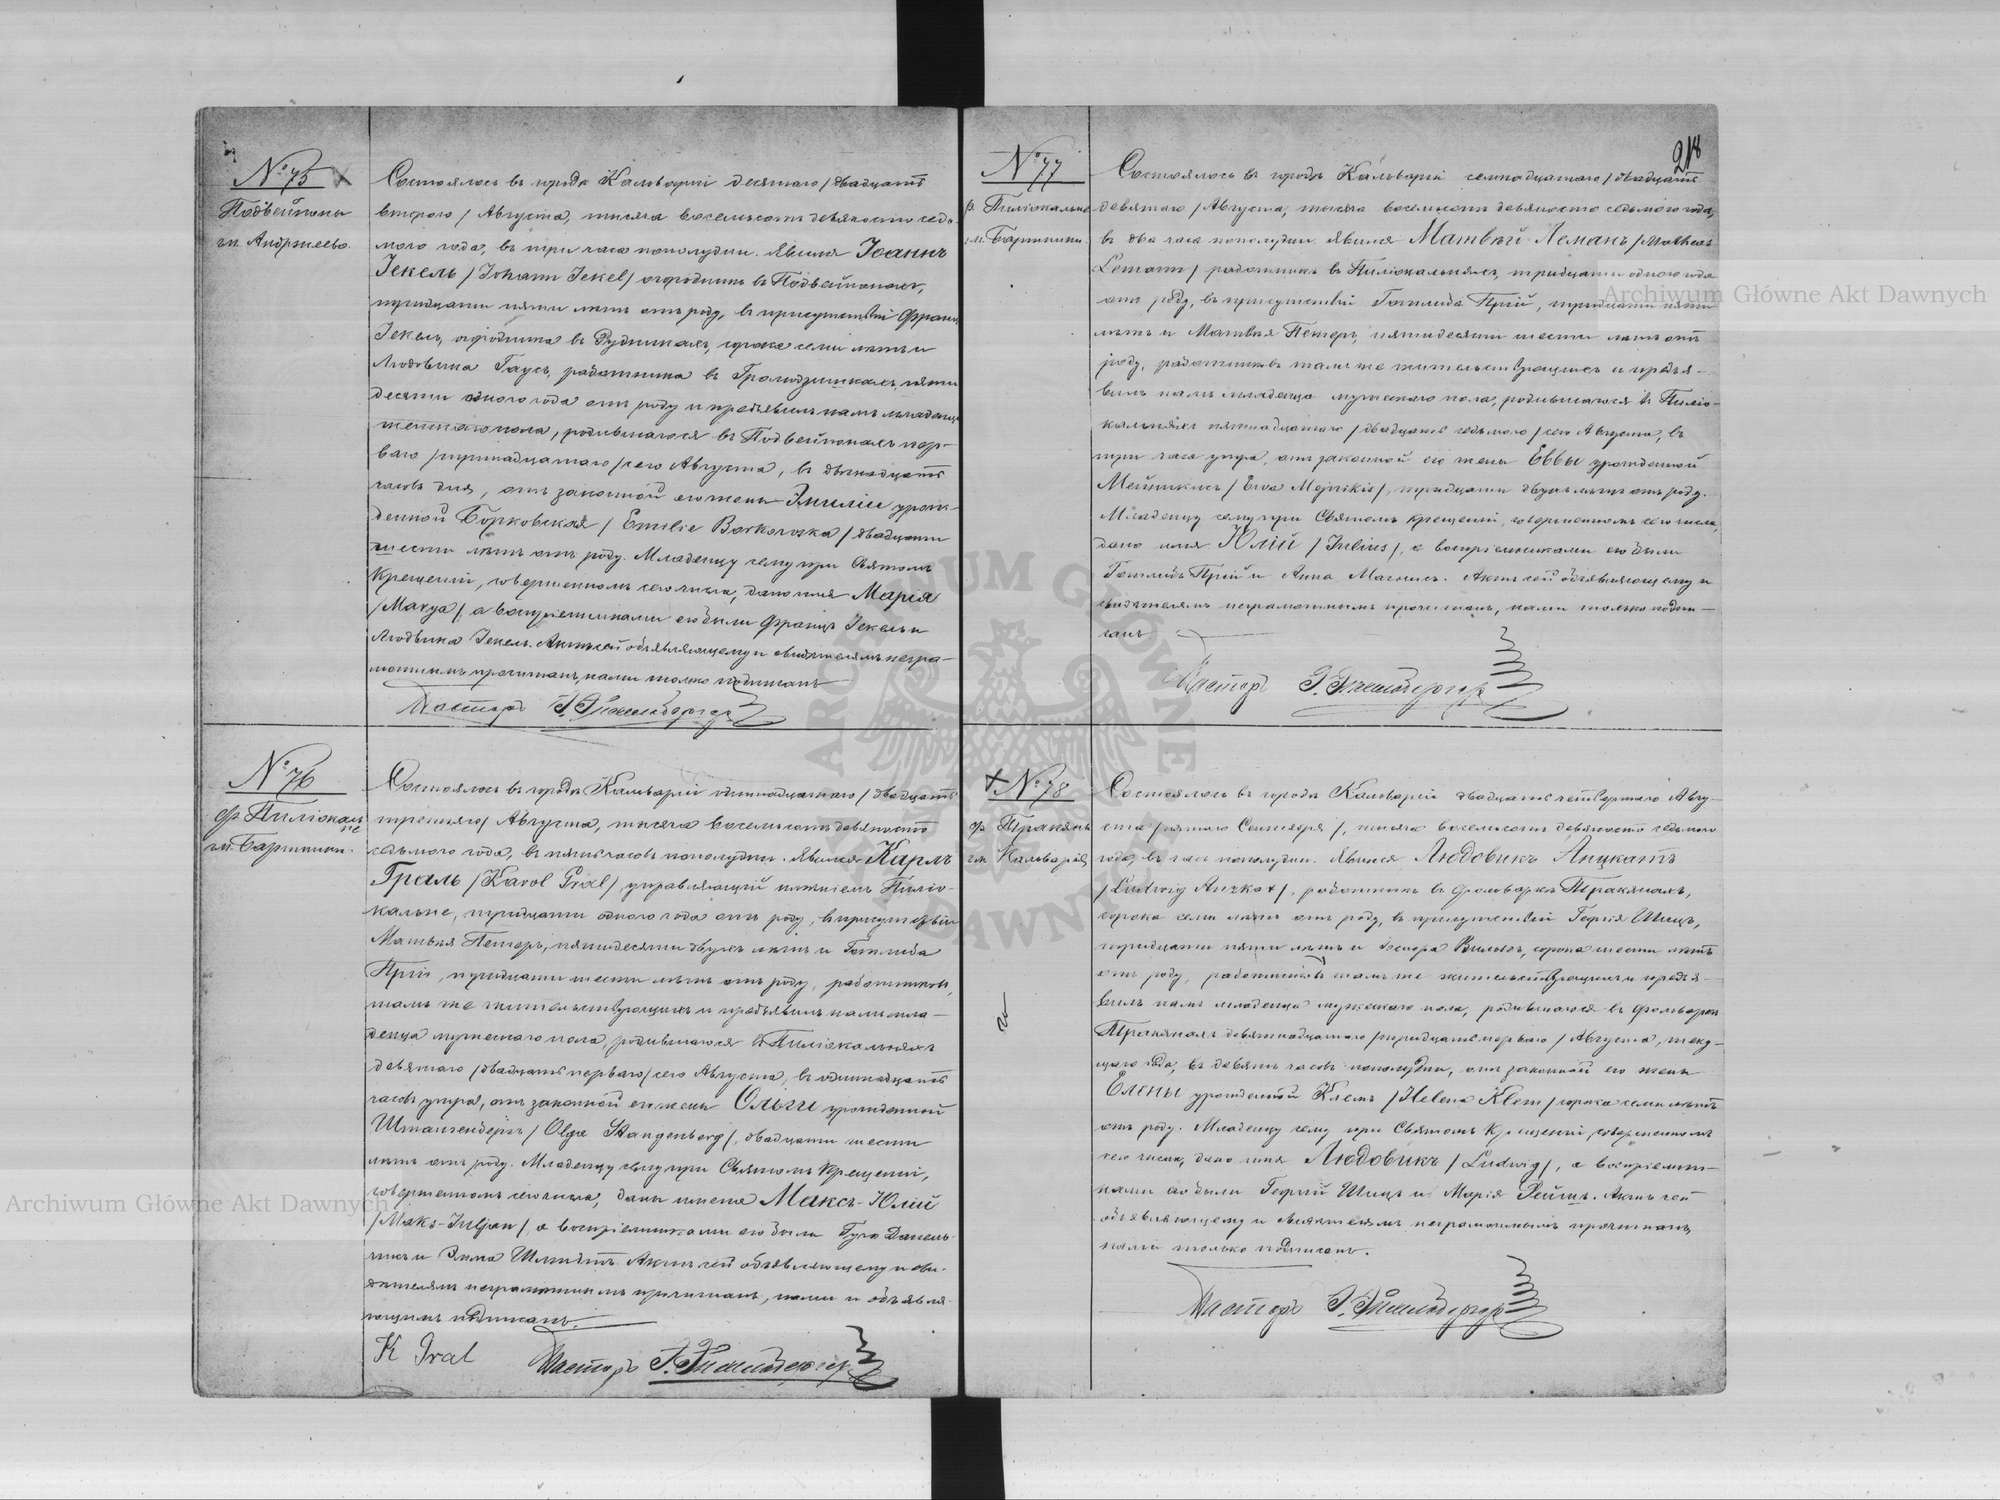 № 75
Подвейпоны
гм. Андржеево.
Состоялось въ городѣ Кальваріи десятаго /двадцать
втораго/ Августа, тысяча восемьсотъ девяносто седь-
мого года, въ три часа пополудни. Явился Іоаннъ
Іекель /Johann Jekel/ огородникъ въ Подвейпонахъ,
тридцати пяти лѣтъ отъ роду, въ присутствіи Франца
Іекель, огородника въ Рудникахъ, сорока семи лѣтъ и
Людовика Гаусъ, работника въ пяти
десяти одного года отъ роду и предъявилъ намъ младенца
женскаго пола, родившагося въ Подвейпонахъ пер-
ваго /тринадцатаго/ сего Августа, въ двѣнадцать
часовъ дня, отъ законной его жены Эмиліи урож-
денной Борковская /Emilie Borkowska/ двадцати
шести лѣтъ отъ роду. Младенцу сему при Святомъ
Крещеніи, совершенномъ сего числа, дано имя Марія
/Marya/, а воспріемниками его были Францъ Іекель и
Людвика Іекель. Актъ сей объявляющему и свидѣтелямъ негра-
мотнымъ прочитанъ, нами только подписанъ
Пасторъ
№ 76
ф. Пиліокальне
гм. Бартники.
Состоялось въ городѣ Кальваріи одиннадцатаго /двадцать
третьяго/ Августа, тысяча восемьсотъ девяносто
седьмого года, въ пять часовъ пополудни. Явился Карлъ
Граль /Karol Gral/, управляющій имѣніемъ Пиліо-
кальне, тридцати одного года отъ роду, въ присутствіи
Матвѣя Петеръ, пятидесяти двухъ лѣтъ и Готлиба
Прій, тридцати шести лѣтъ отъ роду, работниковъ,
тамъ же жительствующихъ и предъявилъ намъ мла-
денца мужескаго пола, родившагося въ Пиліокальняхъ
девятаго /двадцать перваго/ сего Августа, въ одиннадцать
часовъ утра, отъ законной его жены Ольги урожденной
Штангенбергъ /Olga Stangenberg/, двадцати шести
лѣтъ отъ роду. Младенцу сему при Святомъ Крещеніи,
совершенномъ сего числа, даны имена Максъ-Юлій
/Maks-Juljan/, а воспріемниками его были Гуго
и Эмма Шмидтъ. Актъ сей объявляющему и сви-
дѣтелямъ неграмотнымъ прочитанъ, нами и объявля-
ющимъ подписанъ.
K Gral Пасторъ
218
№ 77
ф. Пиліокальне
гм. Бартники.
Состоялось въ городѣ Кальваріи семнадцатаго /двадцать
девятаго/ Августа, тысяча восемьсотъ девяносто седьмого года,
въ два часа пополудни. Явился Матвѣй Леманъ /Matheus
Lemann/ работникъ въ Пиліокальняхъ, тридцати одного года
отъ роду, въ присутствіи Готлиба Прій, тридцати пяти
лѣтъ и Матвѣя Петеръ, пятидесяти шести лѣтъ отъ
роду, работниковъ тамъ же жительствующихъ и предъя-
вилъ намъ младенца мужескаго пола, родившагося въ Пиліо-
кальняхъ пятнадцатаго /двадцать седьмого/ сего Августа, въ
три часа утра, отъ законной его жены Еввы урожденной
Мейникисъ /Ewa Mejnikis/, тридцати двухъ лѣтъ отъ роду.
Младенцу сему при Святомъ Крещеніи, совершенномъ сего числа,
дано имя Юлій /Julius/, а воспріемниками его были
Готлибъ Прій и Анна. Актъ сей объявляющему и
свидѣтелямъ неграмотнымъ прочитанъ, нами только подпи-
санъ.
Пасторъ
№ 78
ф. Тракяны
гм. Кальварія
Состоялось въ городѣ Кальваріи двадцать четвертаго Авгу-
ста /пятаго Сентября/, тысяча восемьсотъ девяносто седьмого
года, въ часъ пополудни. Явился Людовикъ Анцкатъ
/Ludwig Anzkat/, работникъ въ фольваркѣ Тракянахъ,
сорока семи лѣтъ отъ роду, въ присутствіи Георгія Шицъ,
тридцати пяти лѣтъ и сорока шести лѣтъ
отъ роду, работниковъ тамъ же жительствующихъ и предъя-
вилъ намъ младенца мужескаго пола, родившагося въ фольваркѣ
Тракянахъ девятнадцатаго /тридцать перваго/ Августа, теку-
щаго года, въ девять часовъ пополудни, отъ законной его жены
Елены урожденной Клемъ /Helena Klem/ сорока семи лѣтъ
отъ роду. Младенцу сему при Святомъ Крещеніи, совершенномъ
сего числа, дано имя Людовикъ /Ludwig/, а воспріемни-
ками его были Георгій Шицъ и Марія. Актъ сей
объявляющему и свидѣтелямъ неграмотнымъ прочитанъ,
нами только подписанъ.
Пасторъ
Archiwum Główne Akt Dawnych
Archiwum Główne Akt Dawnych
ARCHIWUM GŁÓWNE AKT DAWNYCH